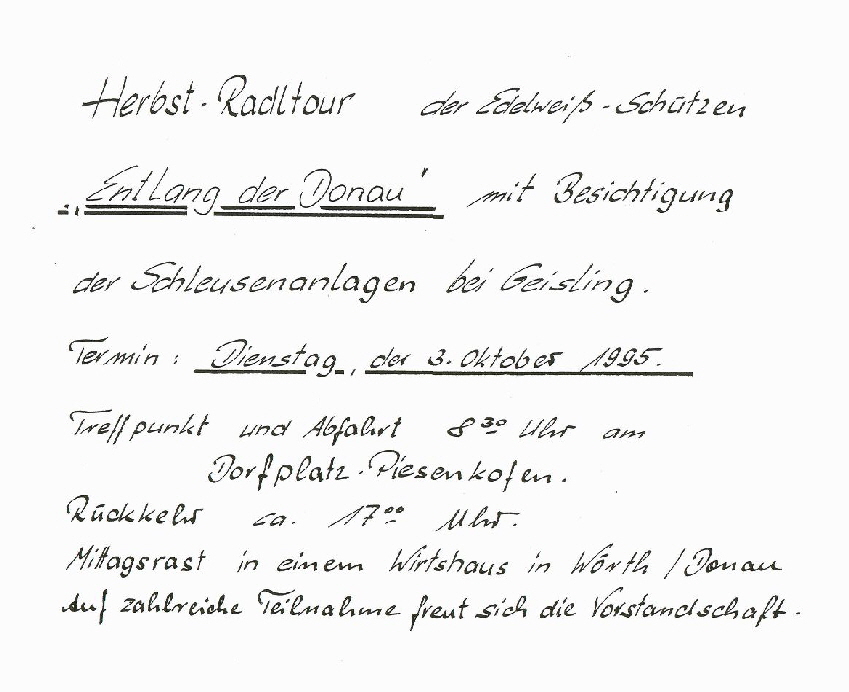 Herbst-Radltour der Edelweiß-Schützen
„Entlang der Donau" mit Besichtigung
der Schleusenanlagen bei Geisling.
Termin: Dienstag, der 3. Oktober 1995.
Treffpunkt und Abfahrt 8³⁰ Uhr am
Dorfplatz-Piesenkofen.
Rückkehr ca. 17⁰⁰ Uhr.
Mittagsrast in einem Wirtshaus in Wörth / Donau
Auf zahlreiche Teilnahme freut sich die Vorstandschaft.